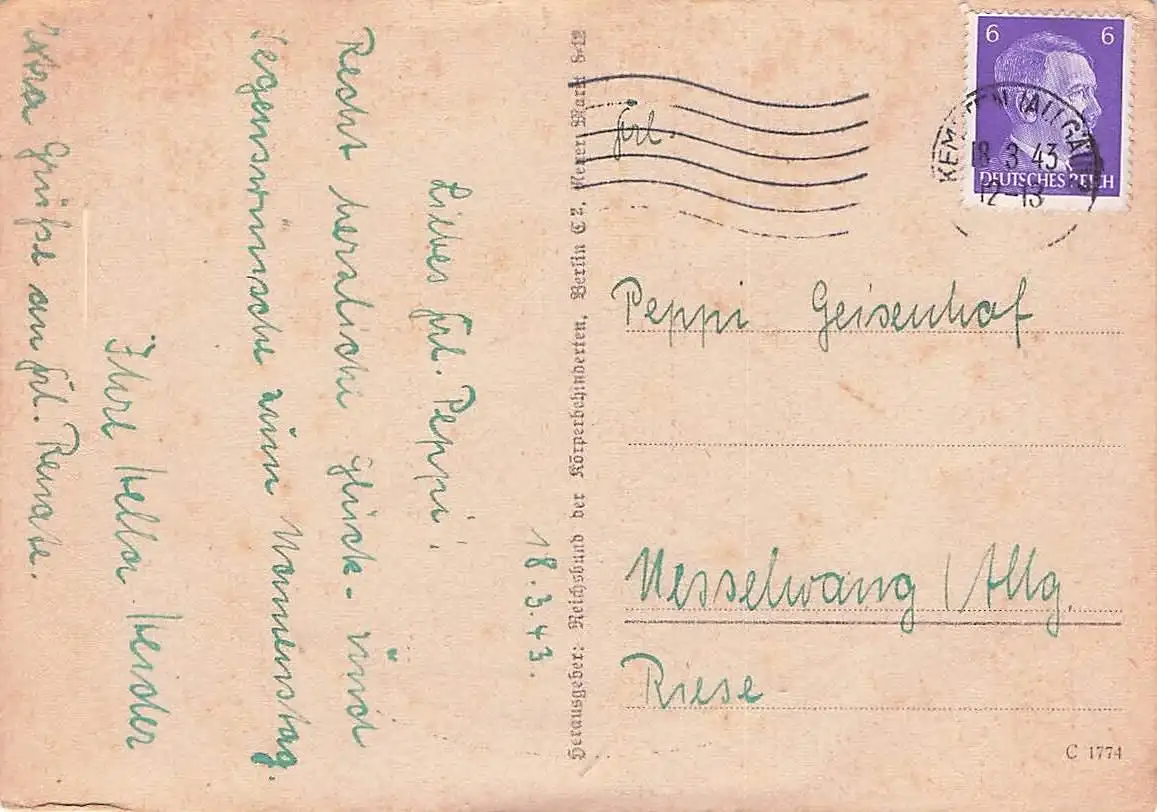 18.3.43.
Liebes Frl. Peppi!
Recht herzliche Glück- und
Segenswünsche zum Namenstag.
Ihre
Extra Grüße an Frl. Renate.
Herausgeber: Reichsbund der Körperbehinderten, Berlin
6 6
DEUTSCHES REICH
KEMPTEN (ALLGÄU)
18.3.43
12-13
Frl.
Peppi Geisenhof
Nesselwang / Allg.
Riese
C 1774